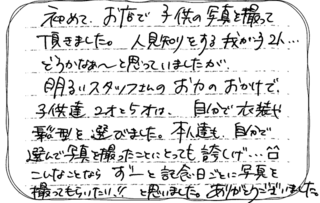 初めて、お店で子供の写真を撮って
頂きました。人見知りをする我が子2人…
どうかなぁ〜と思っていましたが、
明るいスタッフさんのお力のおかげで、
子供達、2才と5才は、自分で衣装や
髪型を選びました。本人達も、自分で
選んで写真を撮ったことにとっても誇しげ…
こんなことなら ずーっと記念日ごとに写真を
撮ってもらいたい!!と思いました。ありがとうございました。